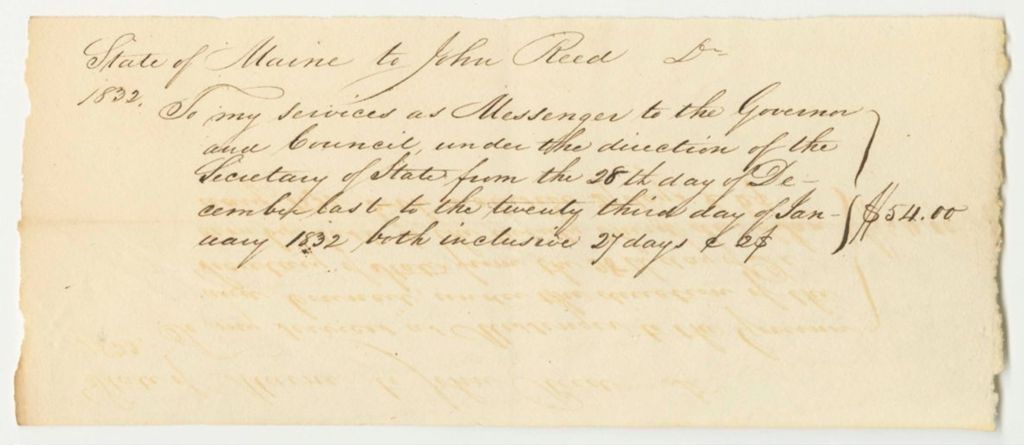 State of Maine to John Reed Dr
1832. To my services as Messenger to the Governor
and Council, under the direction of the
Secretary of State from the 28th day of De-
cember last to the twenty third day of Jan-
uary 1832 both inclusive 27 days @ 2$ $54.00